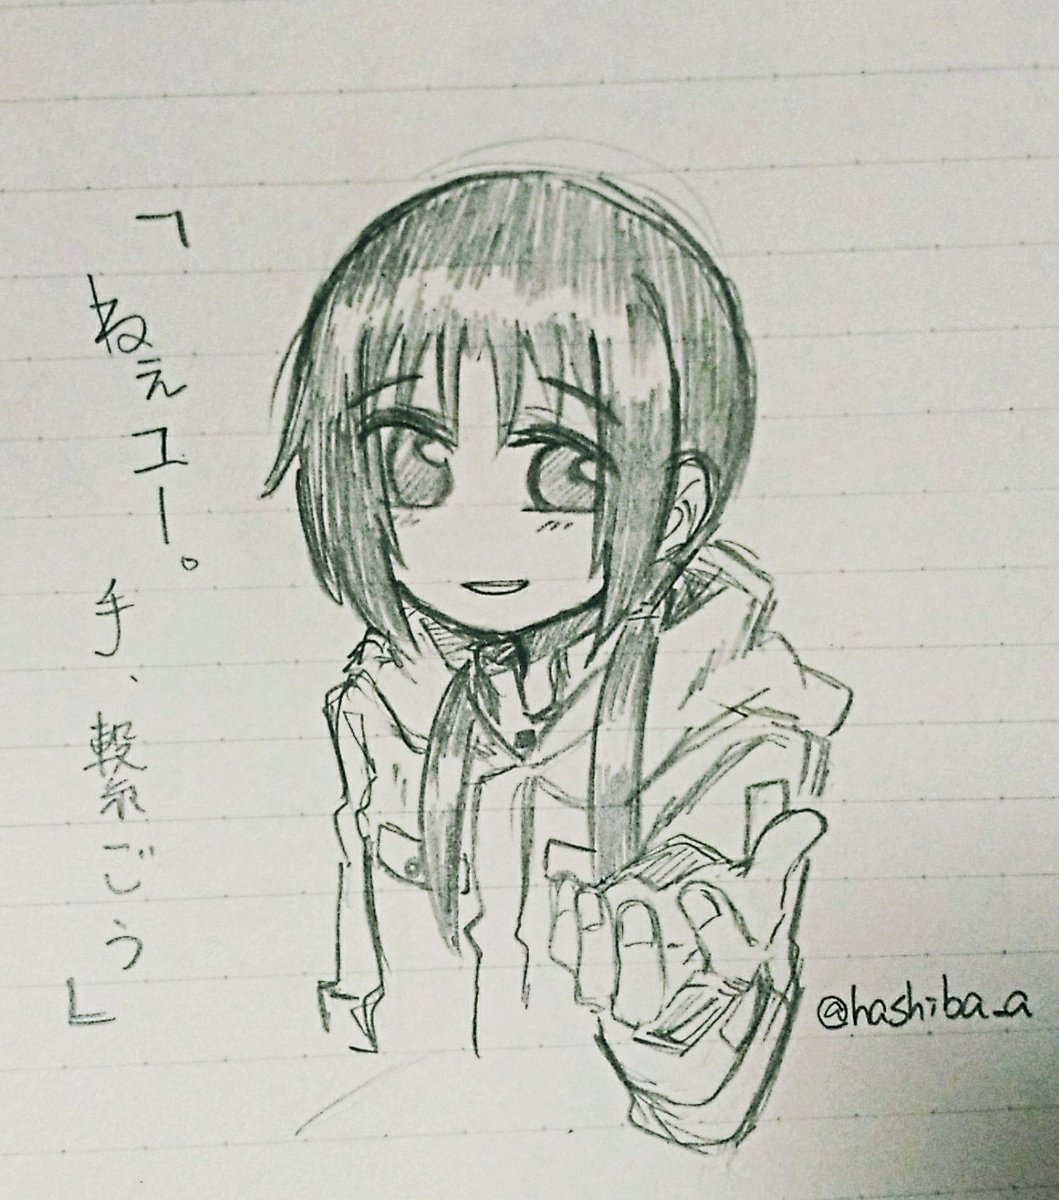 「ねぇユー。
手、繋ごう」
@hashiba_a